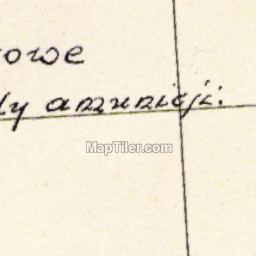 owe
dy amunicji.
MapTiler.com